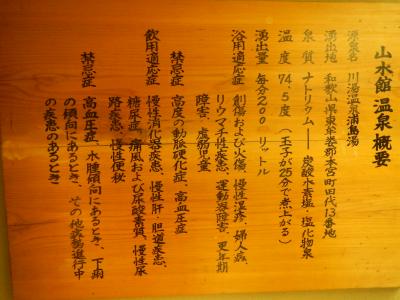 山水館 温泉概要
源泉名 川湯温泉浦島湯
湧出地 和歌山県東牟婁郡本宮町田代13番地
泉質 ナトリウム――炭酸水素塩・塩化物泉
温度 74.5度(玉子が25分で煮上がる)
湧出量 毎分200リットル
浴用適応症 創傷および火傷、慢性湿疹、婦人病、
リウマチ性疾患、運動器障害、更年期
障害、虚弱児童
禁忌症 高度の動脈硬化症、高血圧症
飲用適応症 慢性消化器疾患、慢性肝・胆道疾患、
糖尿症、痛風および尿酸素質、慢性尿
路疾患、慢性便秘
禁忌症 高血圧症、水腫傾向にあるとき、下痢
の傾向にあるとき、その他病勢進行中
の疾患のあるとき